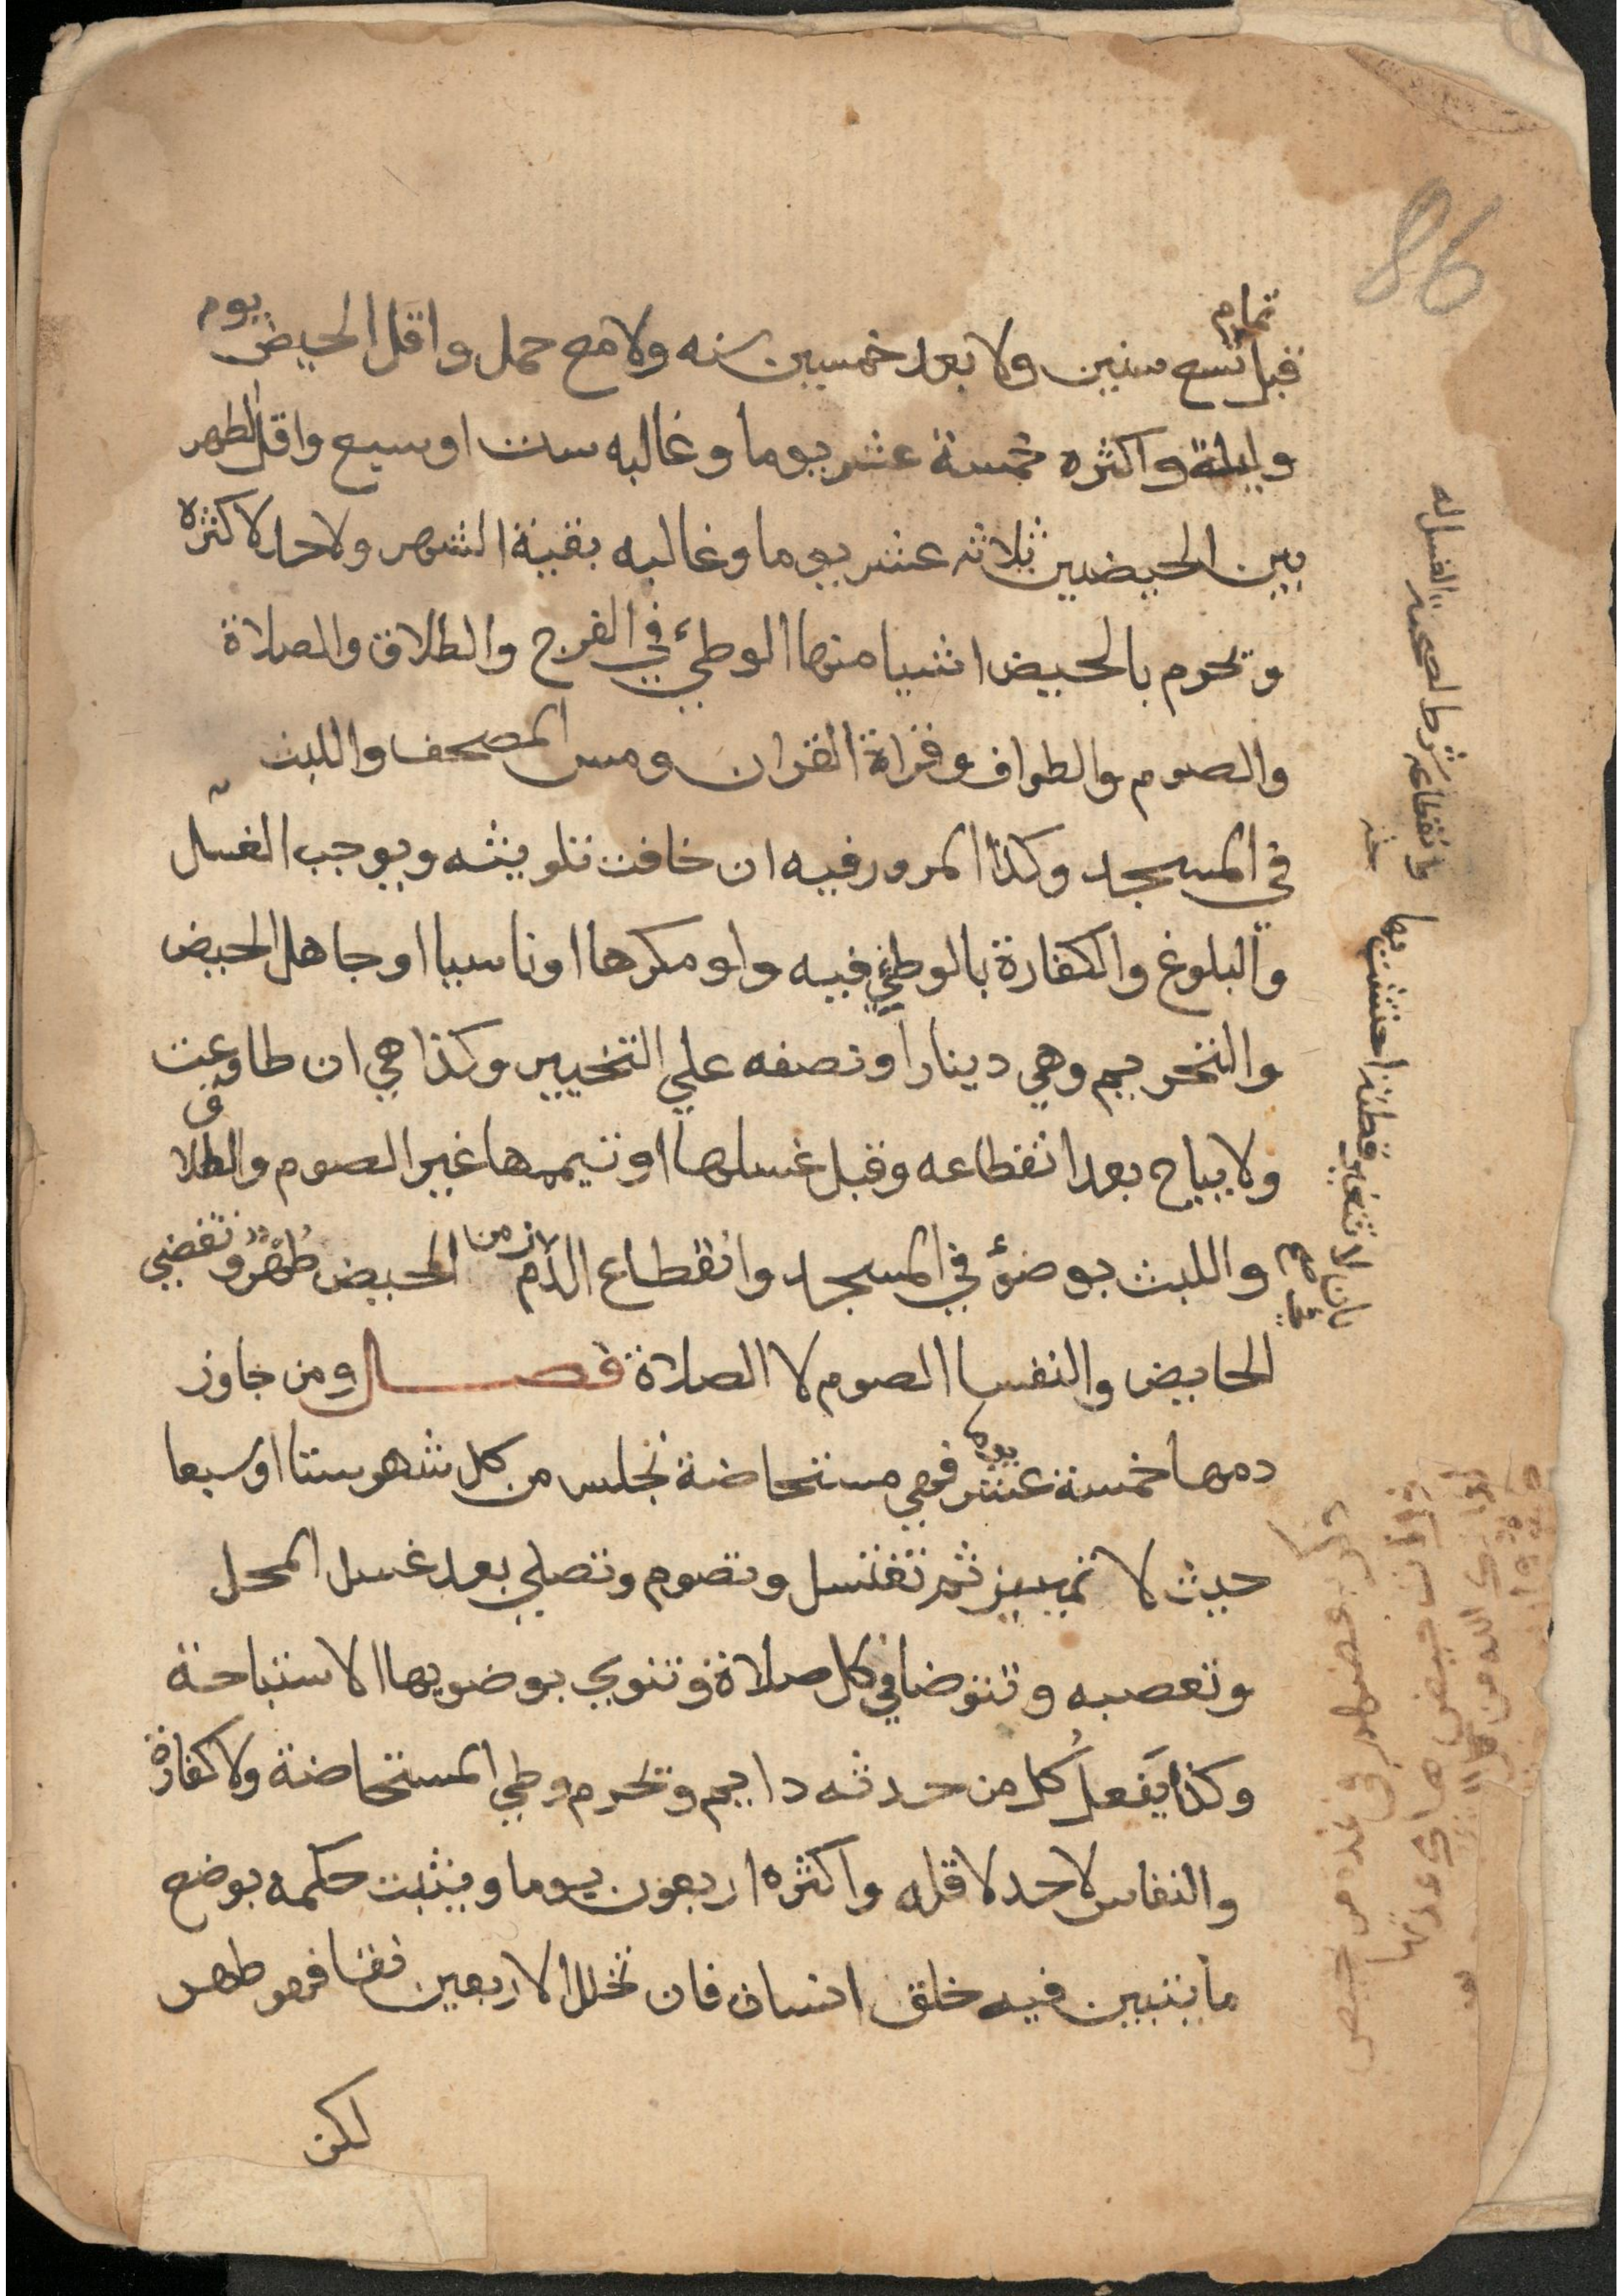 86
قبل تمام تسع سنين ولا بعد خمسين سنه ولا مع حمل واقل الحيض يوم
وليلة واكثره خمسة عشر يوما وغالبه ست او سبع واقل الطهر
بين الحيضين ثلاثه عشر يوما وغالبه بقية الشهر ولا حد لاكثره
ويحرم بالحيض اشيا منها الوطئ في الفرج والطلاق والصلاة
والصوم والطواف وقراة القران ومس المصحف واللبث
في المسجد وكذا المرور فيه ان خافت تلويثه ويوجب الغسل
والبلوغ والكفارة بالوطئ فيه ولو مكرها او ناسيا او جاهل الحيض
والتحريم وهي دينار او نصفه علي التخيير وكذا هي ان طاوعت
ولا يباح بعد انقطاعه وقبل غسلها او تيممها غير الصوم والطلاق
واللبث بوضؤ في المسجد وانقطاع الدم من الحيض طهر وتقضي
الحايض والنفسا الصوم لا الصلاة فصل ومن جاوز
دمها خمسة عشر يوما فهي مستحاضة تجلس من كل شهر ستا او سبعا
حيث لا تمييز ثم تغتسل وتصوم وتصلي بعد غسل المحل
وتعصبه وتتوضا في كل صلاة وتنوي بوضويها الاستباحة
وكذا يفعل كل من حدثه دايم وتحرم وطي المستحاضة ولا كفارة
والنفاس لا حد لاقله واكثره اربعون يوما ويثبت حكمه بوضع
ما يتبين فيه خلق انسان فان تخلل الاربعين نقا فهو طهر
لكن
وانقطاعه شرط لصحة الغسل له
بان لا تتغير قطنة احتشت بها